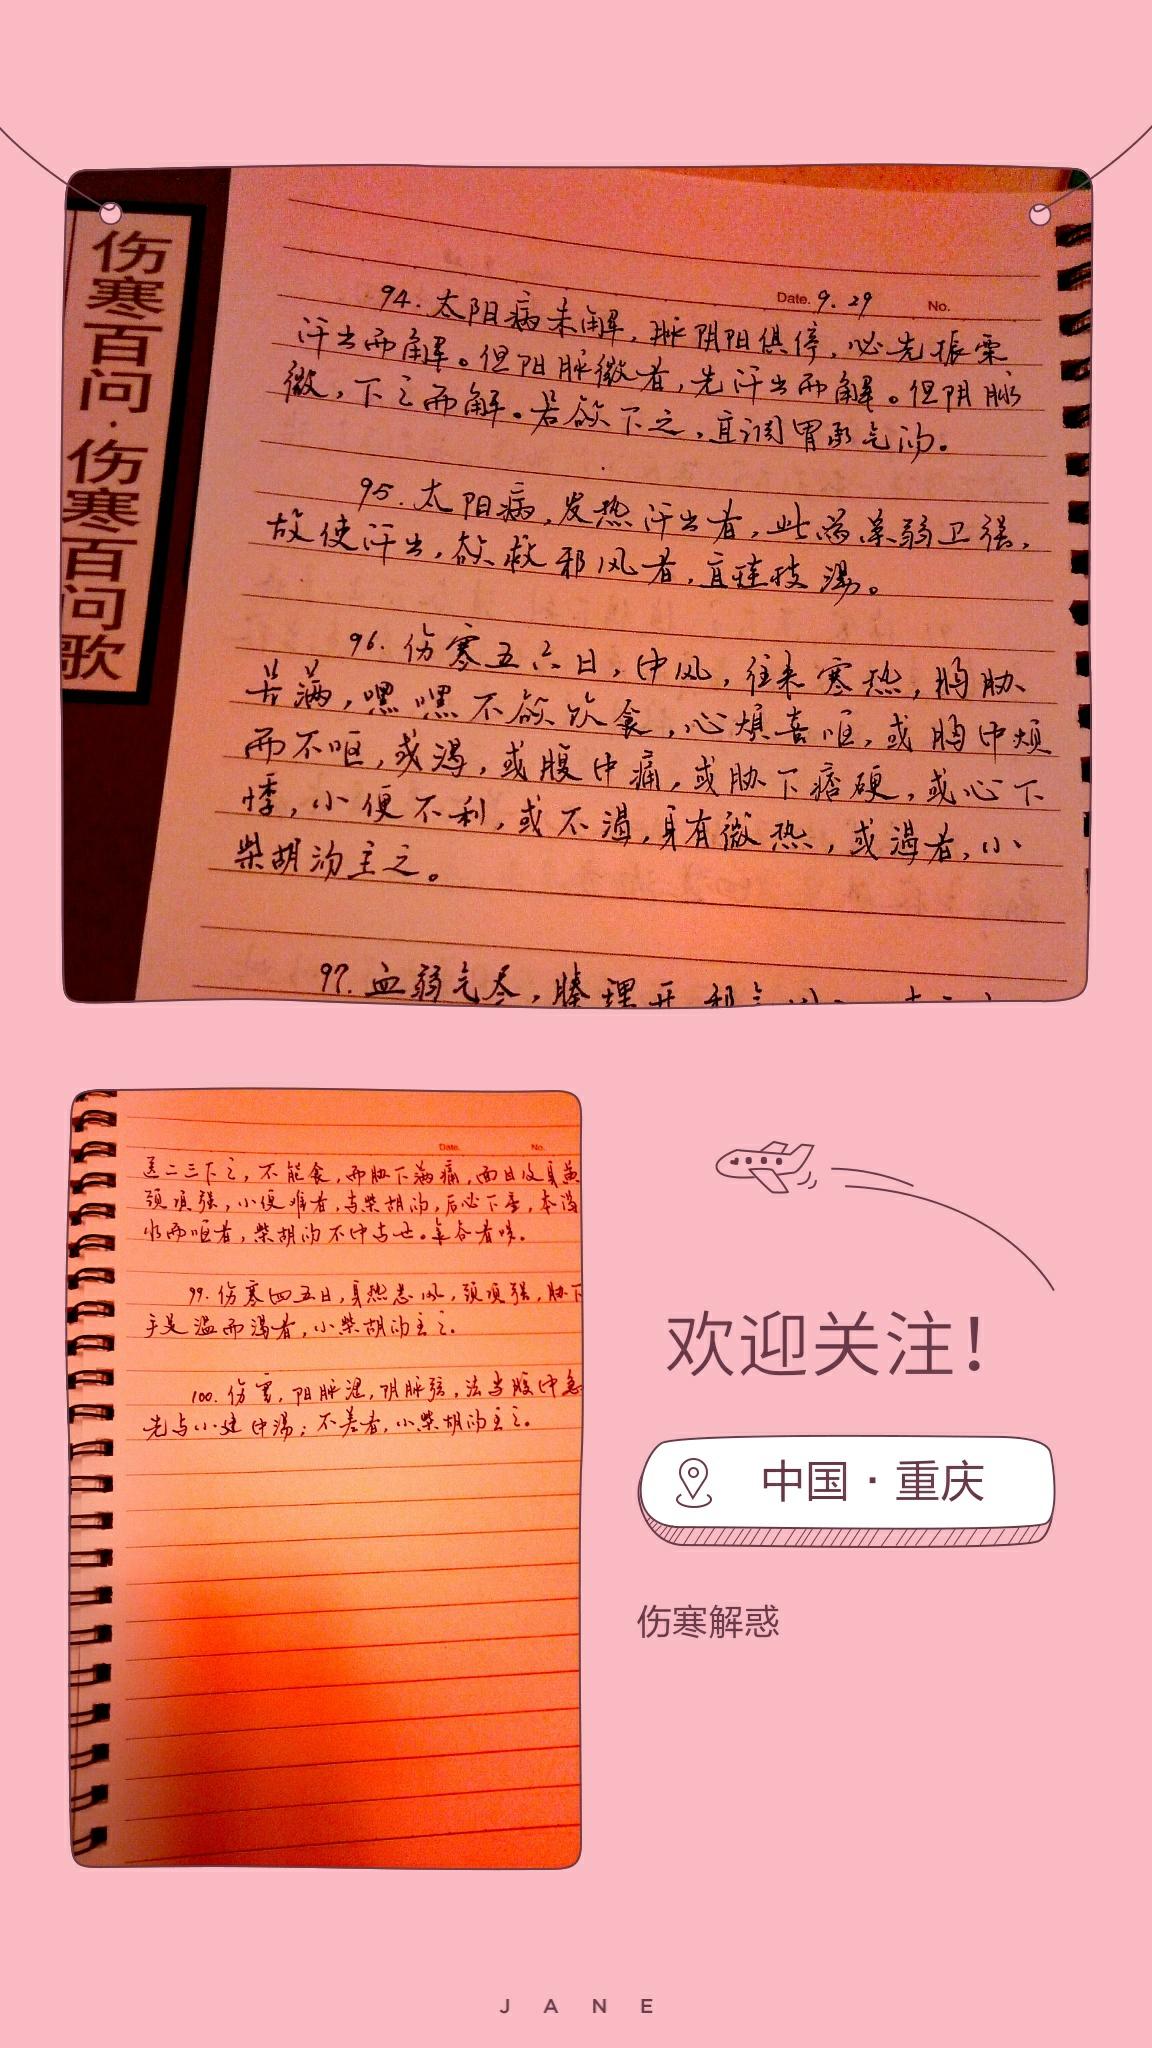 伤寒百问·伤寒百问歌
Date. 9.29 No.
94.太阳病未解,脉阴阳俱停,必先振栗
汗出而解。但阳脉微者,先汗出而解。但阴脉
微,下之而解。若欲下之,宜调胃承气汤。
95.太阳病,发热汗出者,此为荣弱卫强,
故使汗出,欲救邪风者,宜桂枝汤。
96.伤寒五六日,中风,往来寒热,胸胁
苦满,嘿嘿不欲饮食,心烦喜呕,或胸中烦
而不呕,或渴,或腹中痛,或胁下痞硬,或心下
悸,小便不利,或不渴,身有微热,或渴者,小
柴胡汤主之。
97.血弱气尽,腠理开
Date. No.
二三下之,不能食,而胁下满痛,面目及身黄
颈项强,小便难者,与柴胡汤,后必下重,本渴
水而呕者,柴胡汤不中与也。食谷者哕。
99.伤寒四五日,身热恶风,颈项强,胁下
手足温而渴者,小柴胡汤主之。
100.伤寒,阳脉涩,阴脉弦,法当腹中急
先与小建中汤;不差者,小柴胡汤主之。
欢迎关注!
中国·重庆
伤寒解惑
JANE